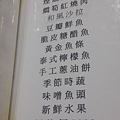 焗葡紅燒肉
和風沙拉
豆瓣鮮魚
脆皮糖醋魚
黃金魚條
泰式檸檬魚
手工蔥油餅
季節時蔬
味噌魚頭
新鮮水果